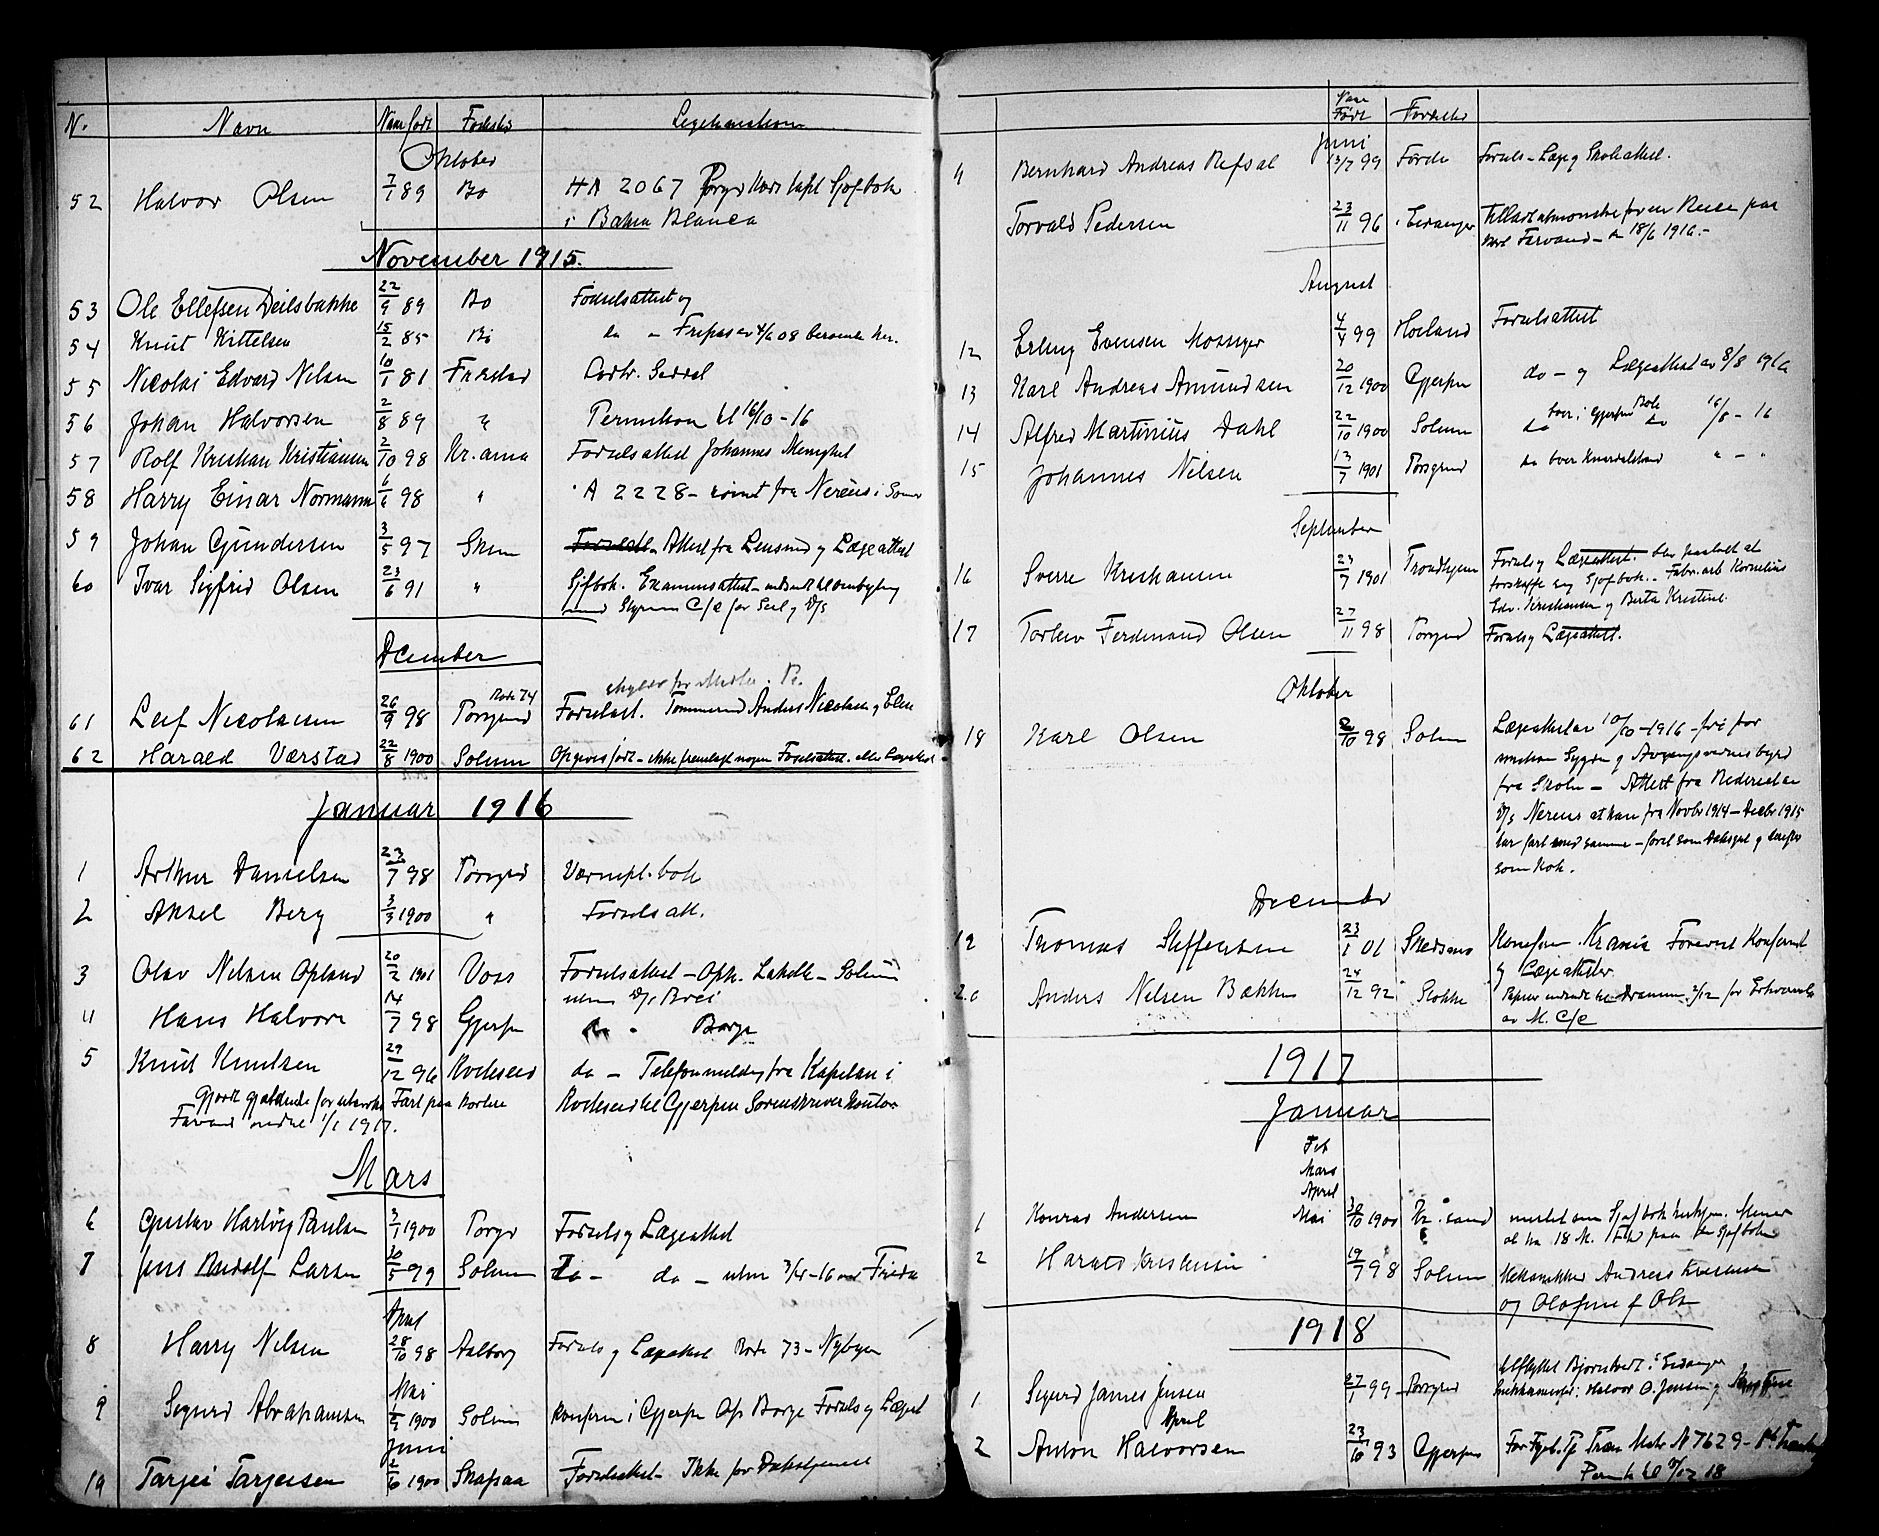 N. Navn Naar født Fødested Legitimation
Oktober
52 Halvor Olsen 7/7 89 Bø HA 2067 Porgr tapt Sjøfbok
i Bahia Blanca
November 1915.
53 Ole Ellefsen Deilsbakke 22/9 89 Bø Fødselsattest og
54 Knut Kittelsen 15/2 85 Bø do - Fripas av 4/6 08 beroende her.
55 Nicolai Edvard Nilsen 10/1 81 Fr.kstad
56 Johan Halvorsen 2/8 89 " Permision til 16/10-16
57 Rolf Kristian Kristiansen 2/10 98 Kr.ania Fødselsattest Johannes Menighet
58 Harry Einar Normann 6/6 98 " A 2228 - rømt fra Nereus i
59 Johan Gundersen 3/5 97 Skien Attest fra Lensmd og Lægeattest
60 Ivar Sigfrid Olsen 23/6 91 " Sjfbok. Examensattest - indsendt til ombytning
med C/C for Seil og D/S
December
61 Leif Nicolaisen 26/9 98 Porsgrund Rode 74 Fødselsatt. Tømmermd Anders Nicolaisen og Elen
62 Harald Værstad 22/8 1900 Solum Opgives født - ikke fremlagt nogen Fødselsattest. eller
Januar 1916
1 Arthur Danielsen 23/7 98 Porsgrd Værnepl. bok
2 Aksel Berg 3/3 1900 " Fødselsatt.
3 Olav Nilsen Opland 20/2 1901 Voss Fødselsattest - Oph. - Solum
D/S Brei
4 Hans Halvor 14/7 98 Gjerpen do - Borge
5 Knut Knutsen 29/12 96 do - Telefonmelding fra Kapelan i
Gjort gjældende for Fart paa
til Gjerpen Sorenskriver Kontor
Farvand 1/1 1917.
Mars
6 Gustav Hartvig Paulsen 3/1 1900 Porsgr Fødsels og Lægeattest
7 Jens Rudolf Larsen 20/5 99 Solum Do - do - 3/4-16 med Frieda
April
8 Harry Nilsen 28/10 98 Aalborg Fødsels og Lægeattest Rode 73 - Nybyen
Mai
9 Sigurd Abrahamsen 1900 Solum konfirm i Gjerpen Op Borge Fødsels og Lægeat
Juni
10 Tarjei Tarjeisen 2/6 1900 Skafsaa Fødselsattest - Ikke for Dækstjeneste
Naar Født Fødested
Juni
11 Bernhard Andreas Refsal 13/7 99 Førde Fødsels - Læge og Skoleattest.
Torvald Pedersen 23/11 96 Eidanger Tilladt at mønstre for en Reise paa
Farvand - den 18/6 1916.-
August
12 Erling Evensen Mosseger 4/4 99 Høiland Fødselsattest
13 Karl Andreas Amundsen 20/12 1900 Gjerpen do - og Lægeattest av 8/8 1916
14 Alfred Martinius Dahl 22/10 1900 Solum do bor i Gjerpen do 16/8 - 16
15 Johannes Nilsen 13/7 1901 Porsgrund do bor Knardalstrand " - "
September
16 Sverre Kristiansen 23/9 1901 Trondhjem Fødsels og Lægeattest. blev paalagt at
forskaffe sig Sjøfbok. - Fabr.arb Kornelius
Edv. Kristiansen og Berta Kristine.
17 Torleiv Ferdinand Olsen 27/11 98 Porsgrund Fødsels og Lægeattest.
Oktober
18 Karl Olsen 2/10 98 Solum Lægeattest av 10/10-1916 - fri for
smitsom Sygdom og Avgangsvidnesbyrd
fra Skolen - Attest fra Rederiet av
D/S Nereus at han fra Novbr 1914 - Decbr 1915
har fart med samme - først som Dæksgut og derefter
som Kok.
December
19 Thomas Steffensen 23/1 01 Skedsmo Konfirm. Krania Forevist Konfirmat
og Lægeattester
20 Anders Nilsen Bækken 24/12 92 Stokke Papirer indsendt til Drammen 2/12 for Erhvervelse
av M. C/C
1917
Januar
Feb
Mars
April
1 Konrad Andersen Mai 30/10 1900 Kr.sand mistet sin Sjøfbok
2 Harald Kristensen 19/9 98 Solum Andreas Kristensen
og Olofine f. Olsn
1918
1 Sigurd James Jensen 27/1 99 Porsgrund tilflyttet Bjørntvedt i Eidanger
Halvor O. Jensen og
April
2 Anton Halvorsen 23/10 93 Gjerpen N 7629 -
Perm til 18